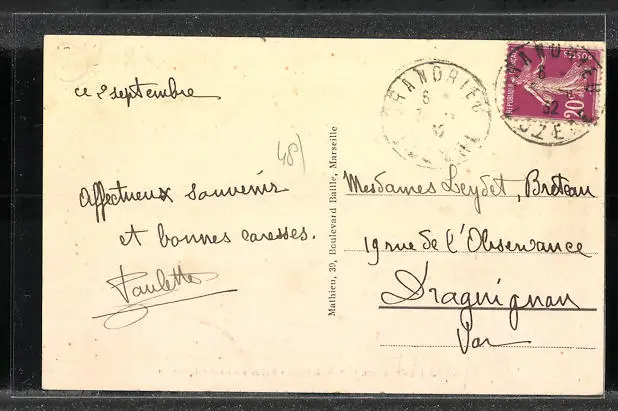 ce 2 septembre
48)
Affectueux souvenir
et bonnes caresses.
Paulette
Mathieu, 39, Boulevard Baille, Marseille
GRANDRIEU
6
LOZERE
32
20c
POSTES
Mesdames Leydet, Breteau
19 rue de l'Observance
Draguignan
Var